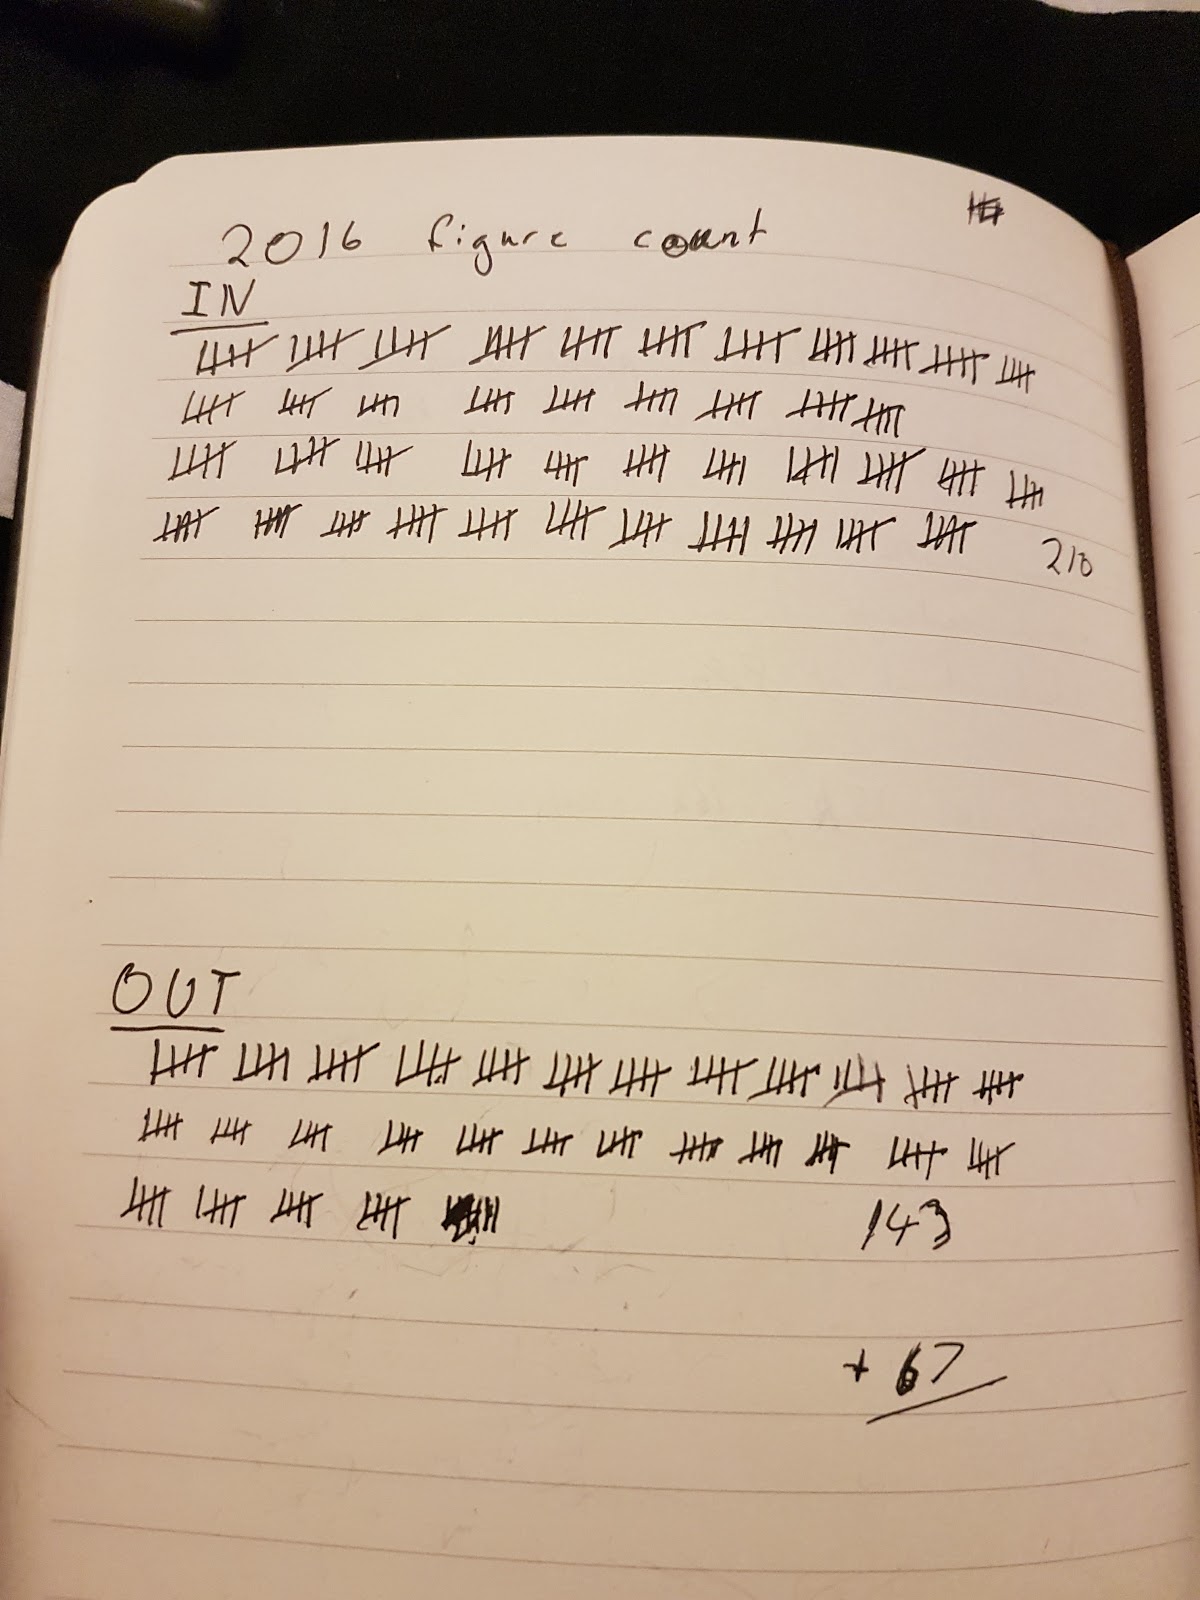 2016 figure count
IN
210
OUT
143
+ 67